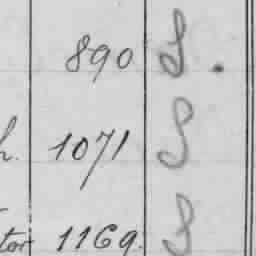 890 S.
h. 1071 S
tor 1169. S